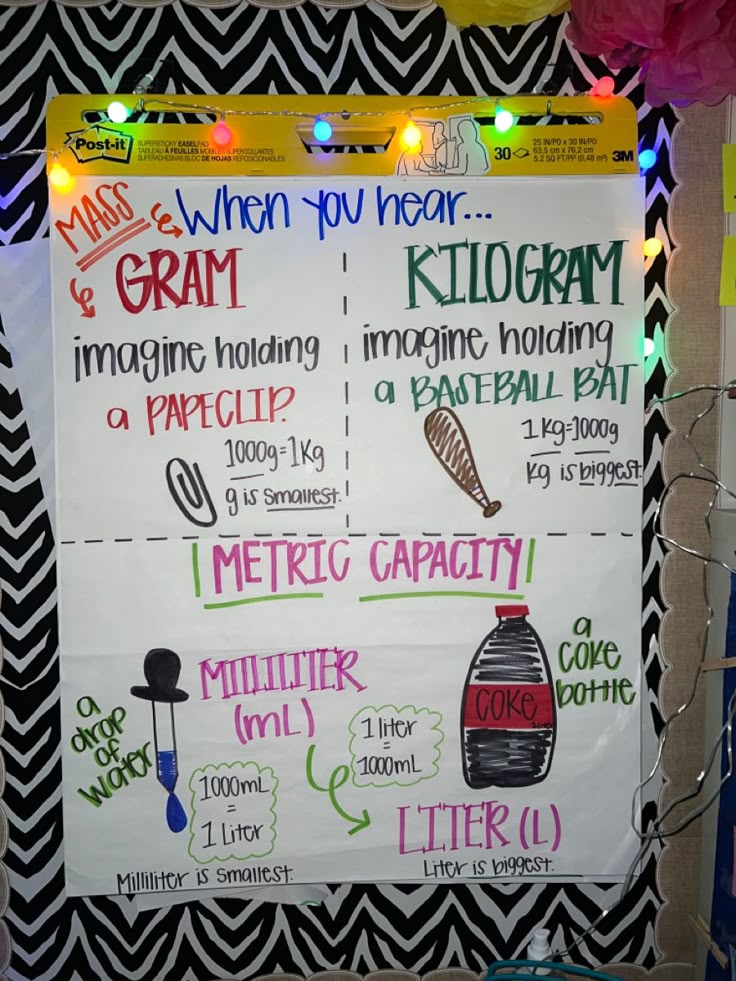 Post-it
SUPERSTICKY EASEL PAD
TABLEAU À FEUILLES MOBILES SUPERCOLLANTES
SUPERADHESIVAS BLOC DE HOJAS REPOSICIONABLES
30
25 IN/PO x 30 IN/PO
63,5 cm x 76,2 cm
5.2 SQ FT/PP (0,48 m²)
3M
MASS
When you hear...
GRAM
imagine holding
a PAPECLIP.
1000g=1Kg
g is Smallest.
KILOGRAM
imagine holding
a BASEBALL BAT
1Kg=1000g
Kg is biggest.
METRIC CAPACITY
a
drop
of
Water
MILLILITER
(mL)
1000mL
=
1 Liter
Milliliter is Smallest.
1 liter
=
1000mL
COKE
a
COKE
bottle
LITER (L)
Liter is biggest.